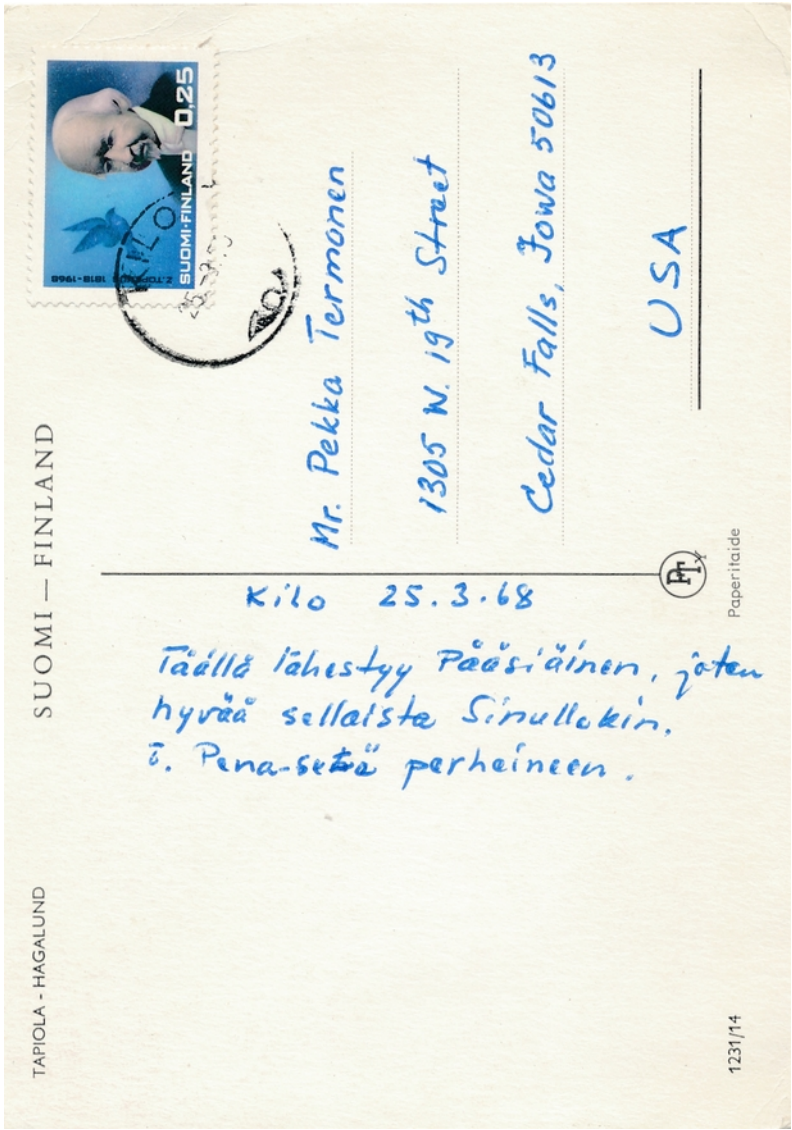 SUOMI — FINLAND
TAPIOLA - HAGALUND
Z. TOPELIUS 1818-1968
SUOMI-FINLAND 0,25
KILO
Mr. Pekka Termonen
1305 W. 19th Street
Cedar Falls, Iowa 50613
USA
PT
Paperitaide
1231/14
Kilo 25.3.68
Täällä lähestyy Pääsiäinen, joten
hyvää sellaista Sinullekin.
T. Pena-setä perheineen.